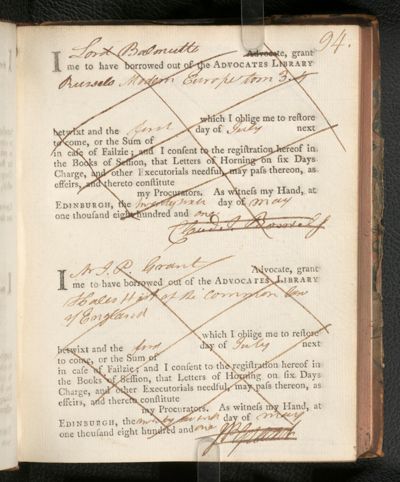 94.
I Lord Balmuto Advocate, grant
me to have borrowed out of the ADVOCATES LIBRARY
Russels Modern Europe tom 3.4
which I oblige me to reſtore
betwixt and the firſt day of July next
to come, or the Sum of
in caſe of Failzie; and I conſent to the regiſtration hereof in
the Books of Seſſion, that Letters of Horning on ſix Days
Charge, and other Executorials needful, may paſs thereon, as
effeirs, and thereto conſtitute
my Procurators. As witneſs my Hand, at
EDINBURGH, the day of May
one thouſand eight hundred and one
Claud I Boswell
I Mr J. P. Grant Advocate, grant
me to have borrowed out of the ADVOCATES LIBRARY
Hales Hist of the Common law
of England
which I oblige me to reſtore
betwixt and the firſt day of July next
to come, or the Sum of
in caſe of Failzie; and I conſent to the regiſtration hereof in
the Books of Seſſion, that Letters of Horning on ſix Days
Charge, and other Executorials needful, may paſs thereon, as
effeirs, and thereto conſtitute
my Procurators. As witneſs my Hand, at
EDINBURGH, the day of May
one thouſand eight hundred and one
JP Grant